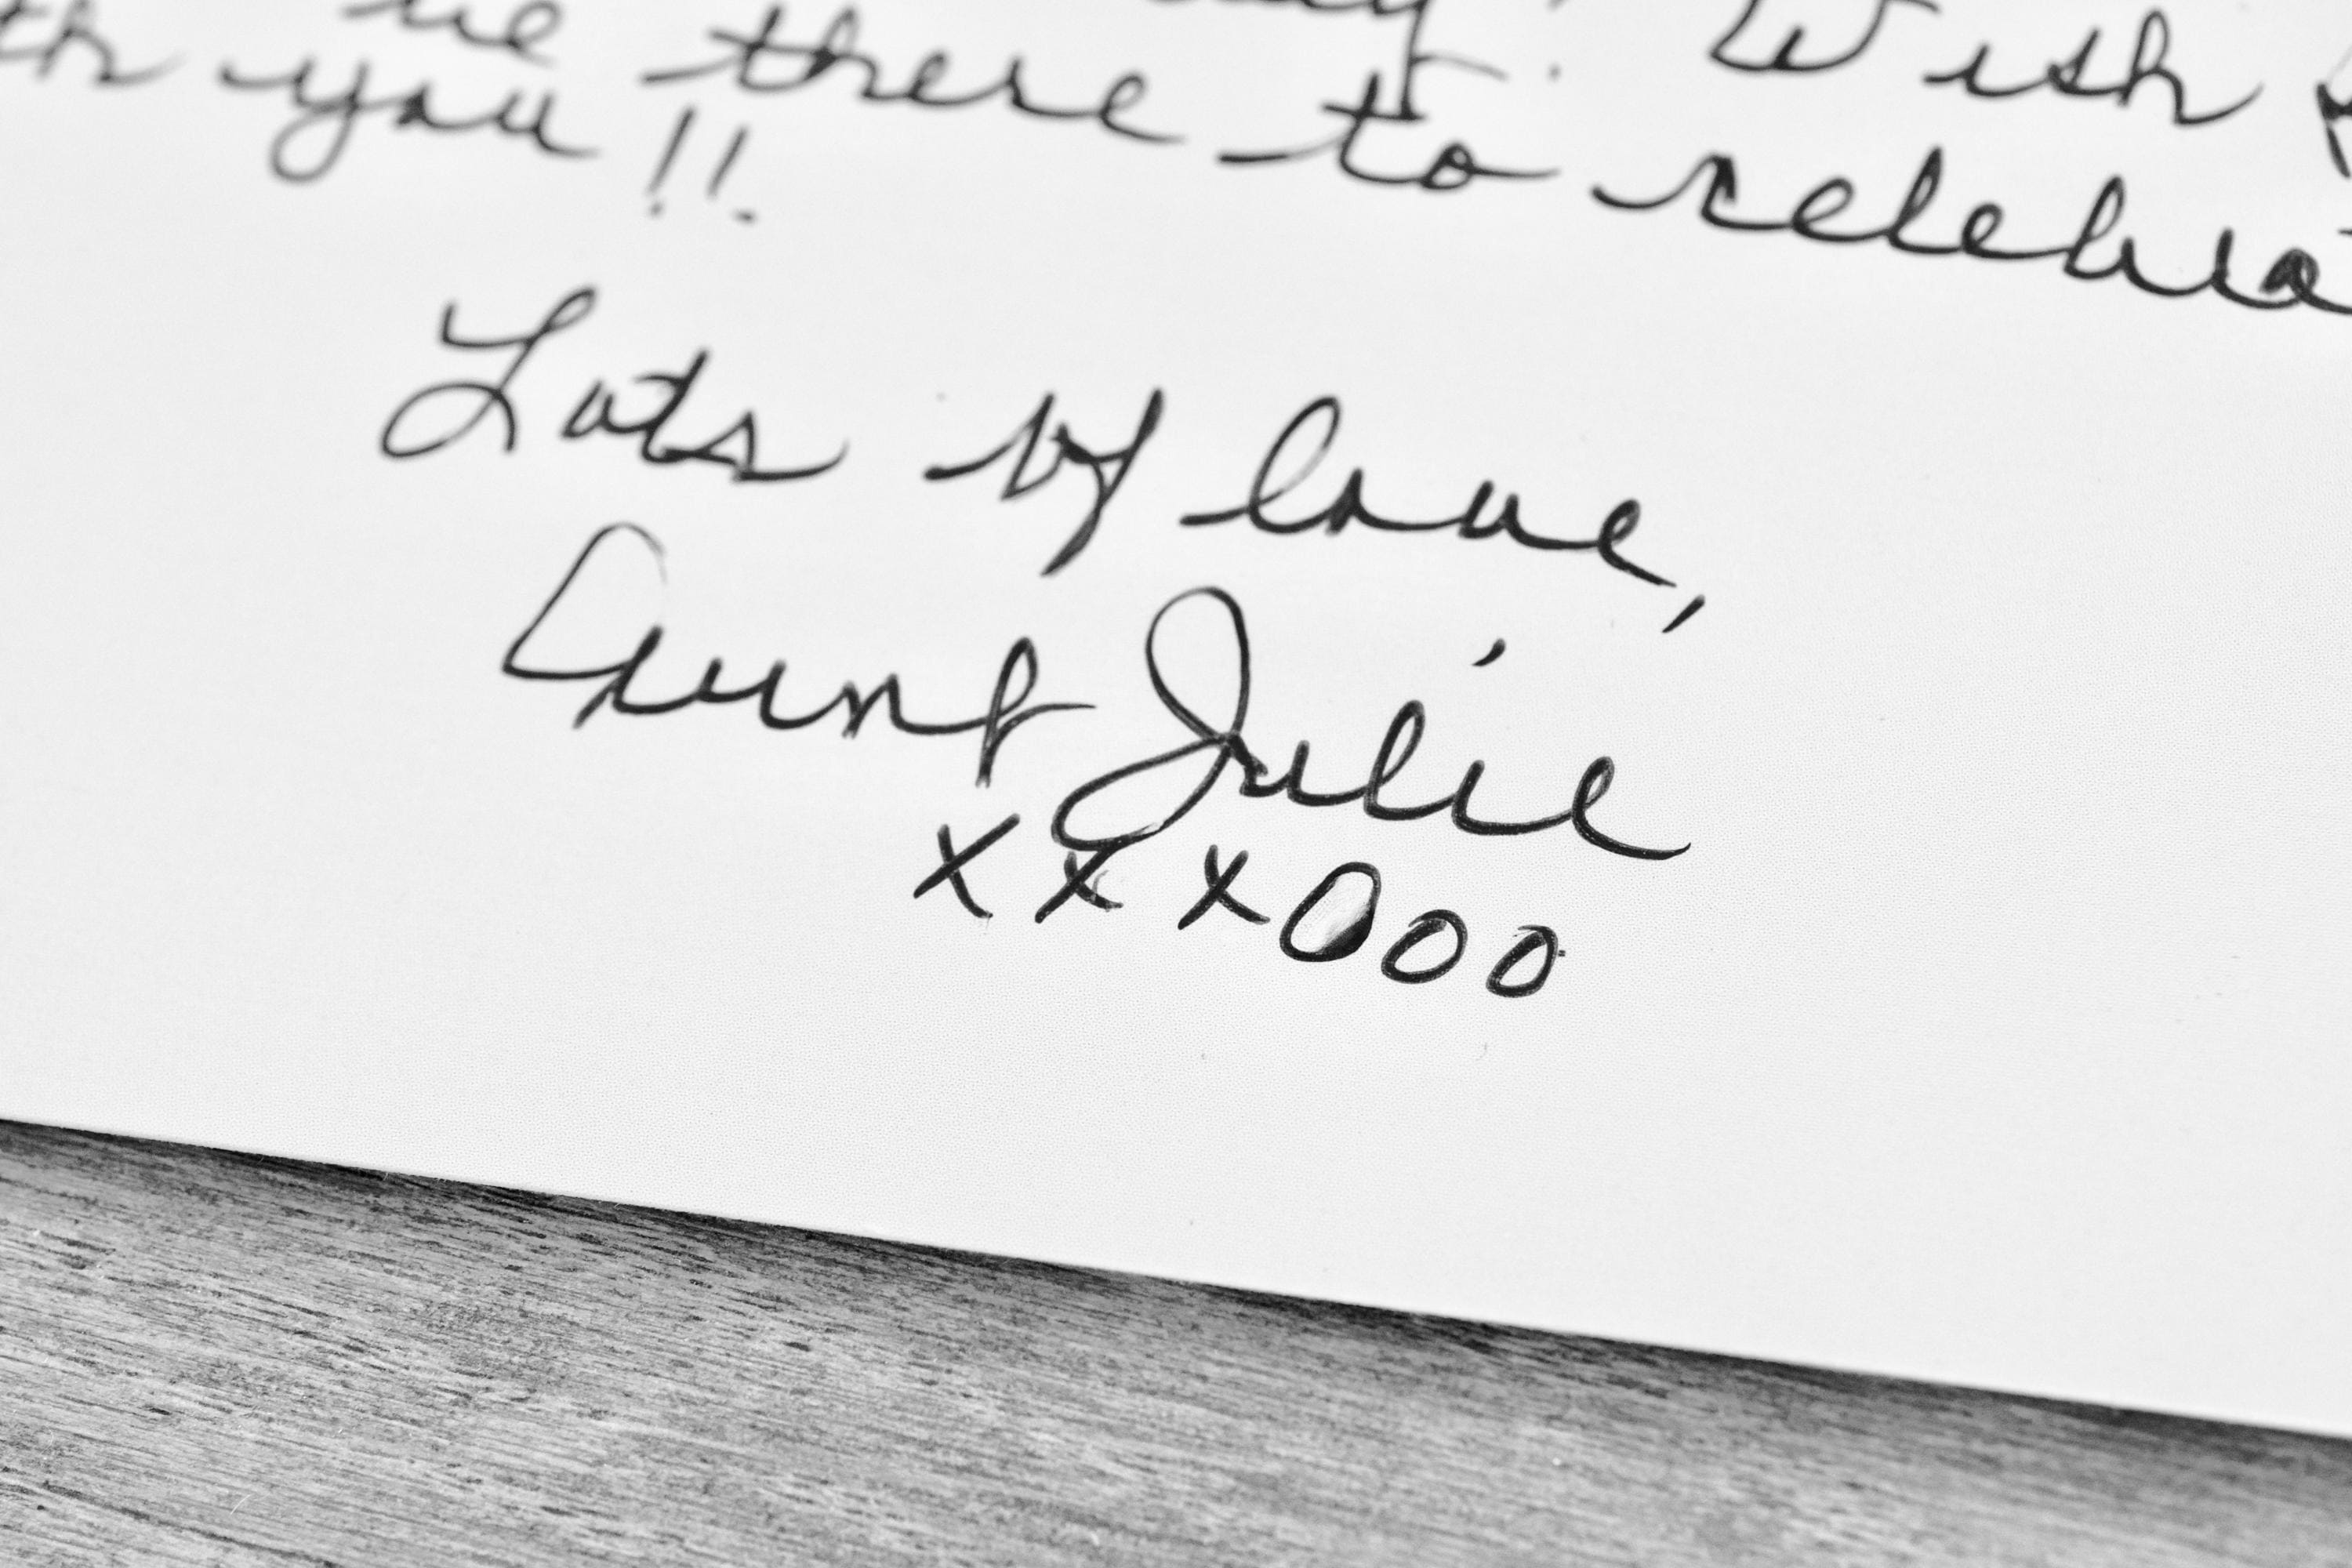 Wish
there to celebra
th you!!
Lots of love,
Aunt Julie
xxxOoo